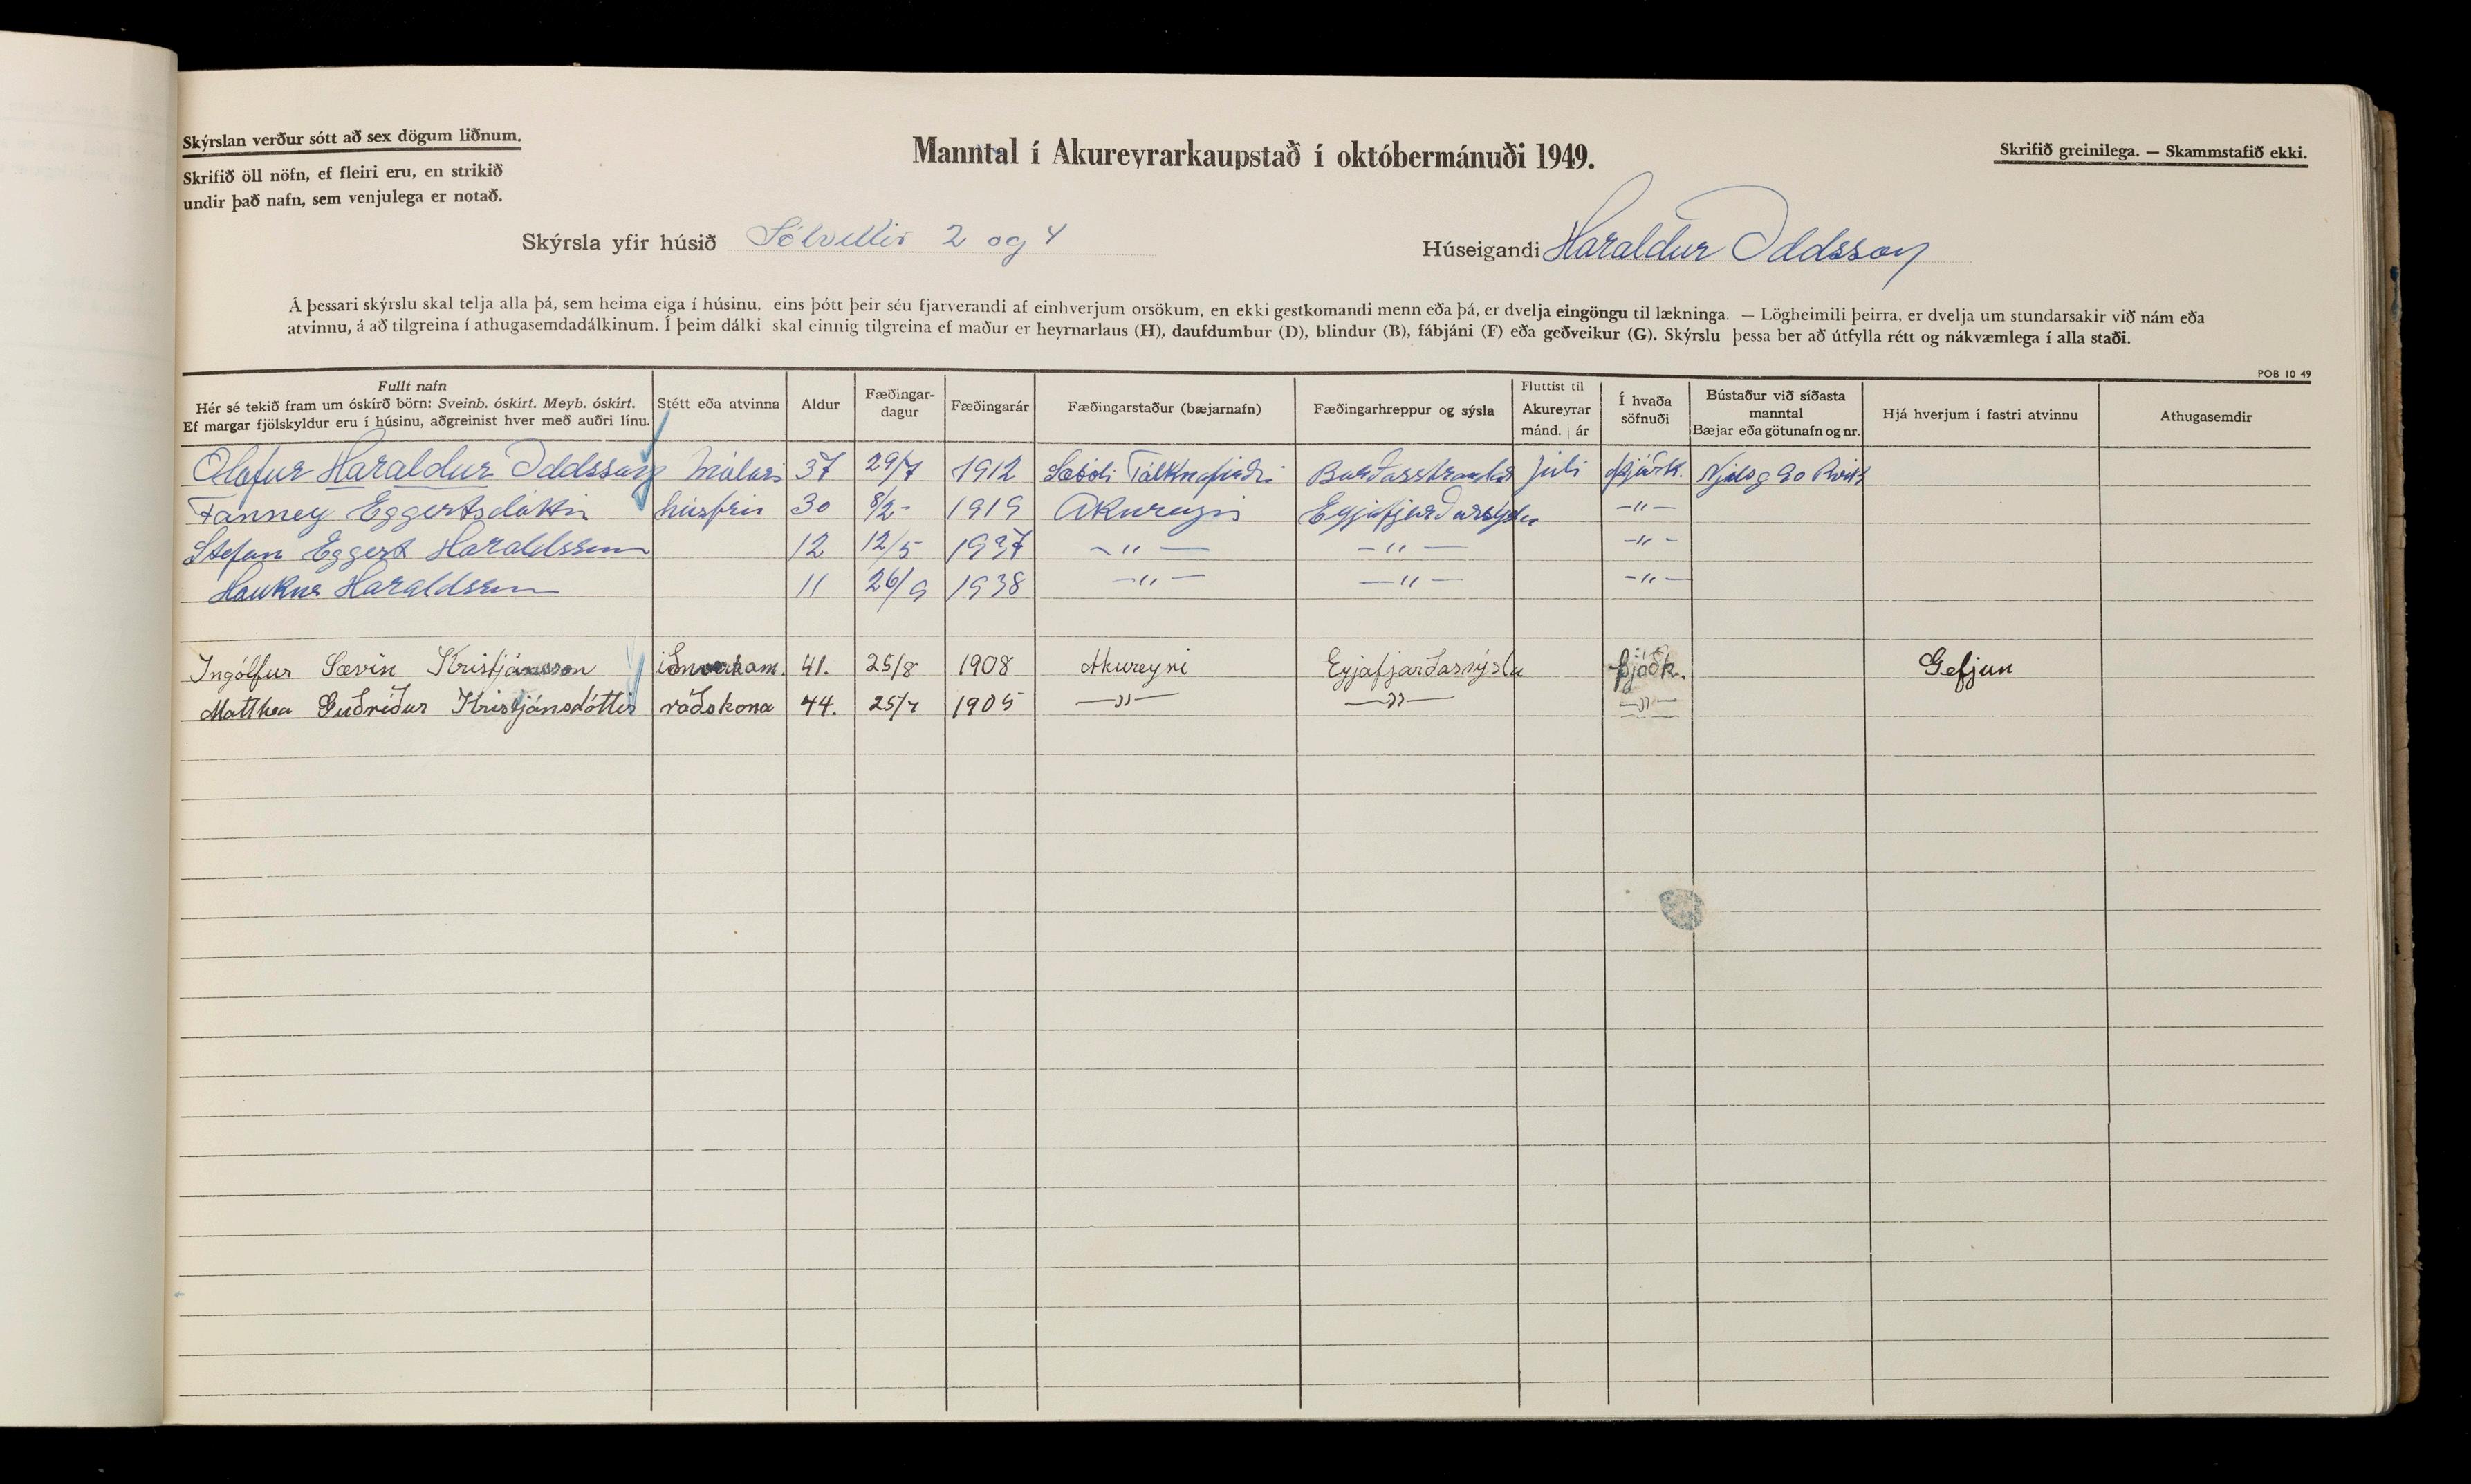 Skýrslan verður sótt að sex dögum liðnum.
Skrifið öll nöfn, ef fleiri eru, en strikið
undir það nafn, sem venjulega er notað.
Manntal í Akureyrarkaupstað í októbermánuði 1949.
Skrifið greinilega. — Skammstafið ekki.
Skýrsla yfir húsið Sólvellir 2 og 4
Húseigandi Haraldur Oddsson
Á þessari skýrslu skal telja alla þá, sem heima eiga í húsinu, eins þótt þeir séu fjarverandi af einhverjum orsökum, en ekki gestkomandi menn eða þá, er dvelja eingöngu til lækninga. — Lögheimili þeirra, er dvelja um stundarsakir við nám eða
atvinnu, á að tilgreina í athugasemdadálkinum. Í þeim dálki skal einnig tilgreina ef maður er heyrnarlaus (H), daufdumbur (D), blindur (B), fábjáni (F) eða geðveikur (G). Skýrslu þessa ber að útfylla rétt og nákvæmlega í alla staði.
POB 10 49
Fullt nafn
Hér sé tekið fram um óskírð börn: Sveinb. óskírt. Meyb. óskírt.
Ef margar fjölskyldur eru í húsinu, aðgreinist hver með auðri línu.
Stétt eða atvinna
Aldur
Fæðingar-
dagur
Fæðingarár
Fæðingarstaður (bæjarnafn)
Fæðingarhreppur og sýsla
Fluttist til
Akureyrar
mánd. | ár
Í hvaða
söfnuði
Bústaður við síðasta
manntal
Bæjar eða götunafn og nr.
Hjá hverjum í fastri atvinnu
Athugasemdir
Olafur Haraldur Oddsson málari 37 29/7 1912 Tálknafirði júli þjóðk. 90 Rvik
Fanney Eggertsdóttir húsfrú 30 8/2- 1919 Akureyri Eyjafjarðarsýslu —〃—
Stefan Eggert Haraldsson 12 12/5 1937 —〃— —〃— —〃—
Haukur Haraldsson 11 26/9 1938 —〃— —〃— —〃—
Ingólfur Sævin Kristjánsson 41. 25/8 1908 Akureyri Eyjafjarðarsýslu þjóðk. Gefjun
Matthea Guðríður Kristjánsdóttir ráðskona 44. 25/7 1905 —〃— —〃— —〃—